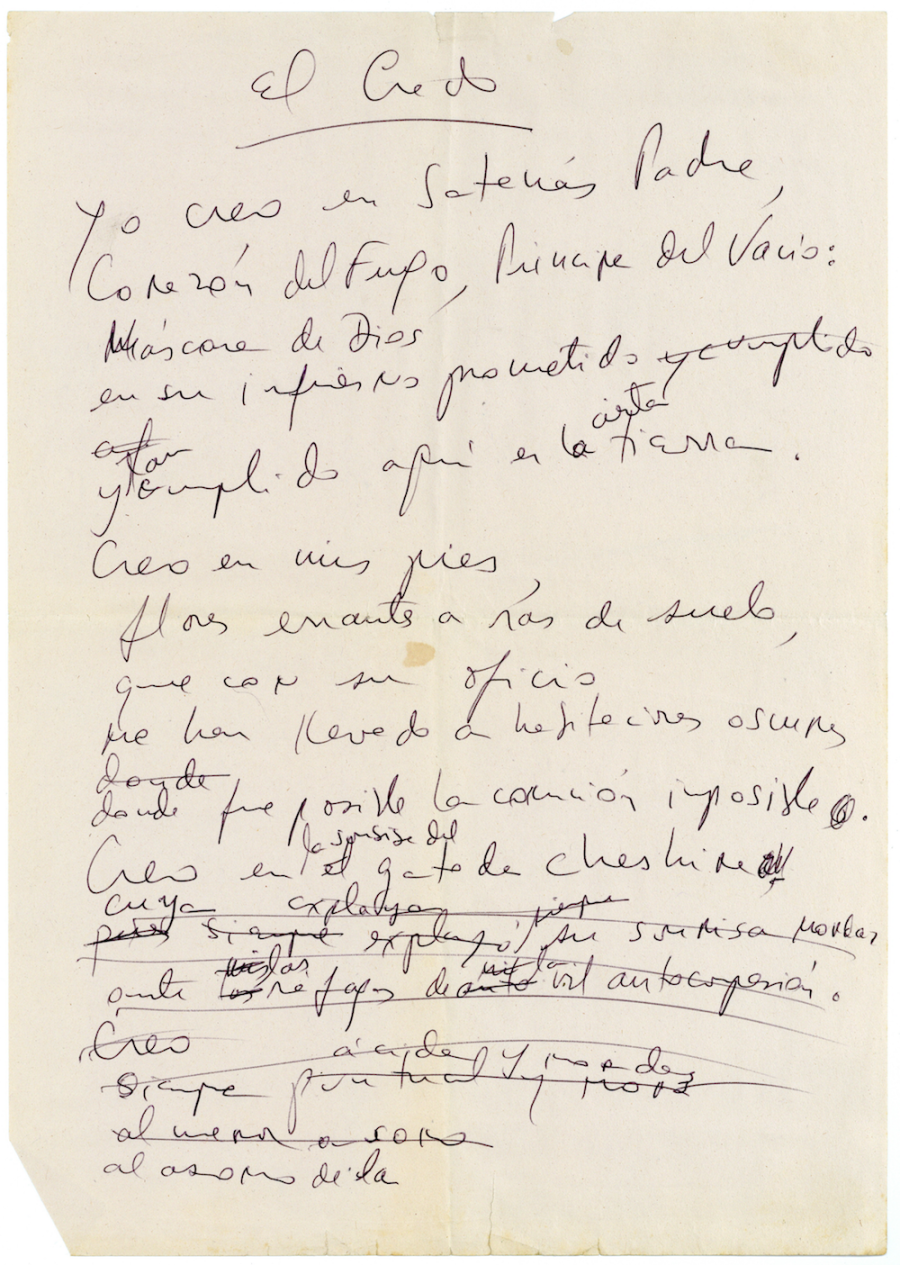 El Credo
Yo creo en Satanás Padre,
Corazón del Fuego, Príncipe del Vacío:
Máscara de Dios
en su infierno prometido y cumplido
tan
cierta
y cumplido aquí en la tierra.
Creo en mis pies,
flores errantes a rás de suelo,
que con su oficio
me han llevado a habitaciones oscuras
donde
donde fue posible la comunión imposible.
la sonrisa del
Creo en el gato de Cheshire
cuya explaya siempre
pues siempre explayó su sonrisa mordaz
mis las mi la
ante los ráfagas de vil autocompasión.
Creo
ácida y mordaz
siempre puntual y
al menor asomo
al asomo de la